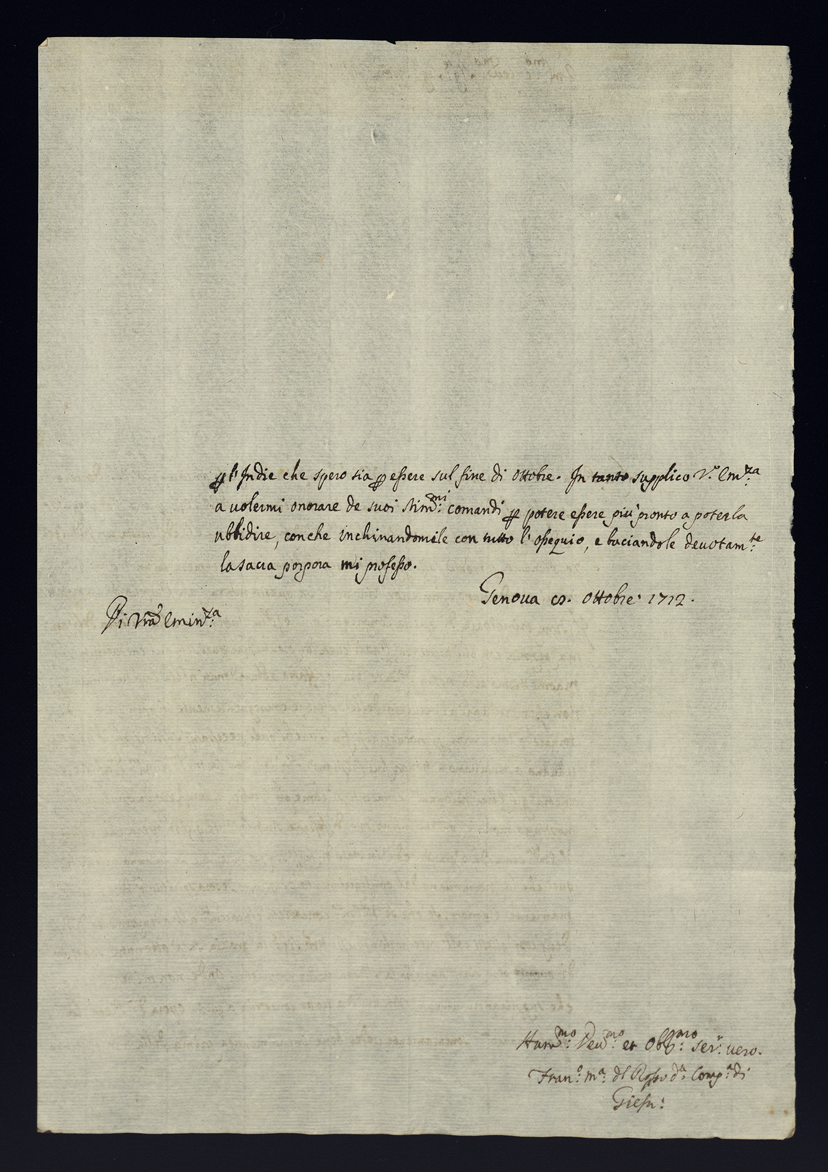 ꝑ l'Indie che spero sia ꝑ essere sul fine di Ottobre. In tanto supplico V.ᵃ Em.ᶻᵃ
a uolermi onorare de suoi stim.ᵐⁱ comandi ꝑ potere essere più pronto a poterla
ubbidire, con che inchinandomele con tutto l'ossequio, e baciandole deuotam.ᵗᵉ
la sacra porpora mi professo.
Genoua Ottobre 1712.
Di Vrã Emin.ᶻᵃ
Hum.ᵐᵒ Deu.ᵐᵒ et Obb.ᵐᵒ Ser.ʳ uero.
Fran.ᵒ M.ᵃ dl Rosso d.ᵃ Comp.ᵃ di
Giesu: